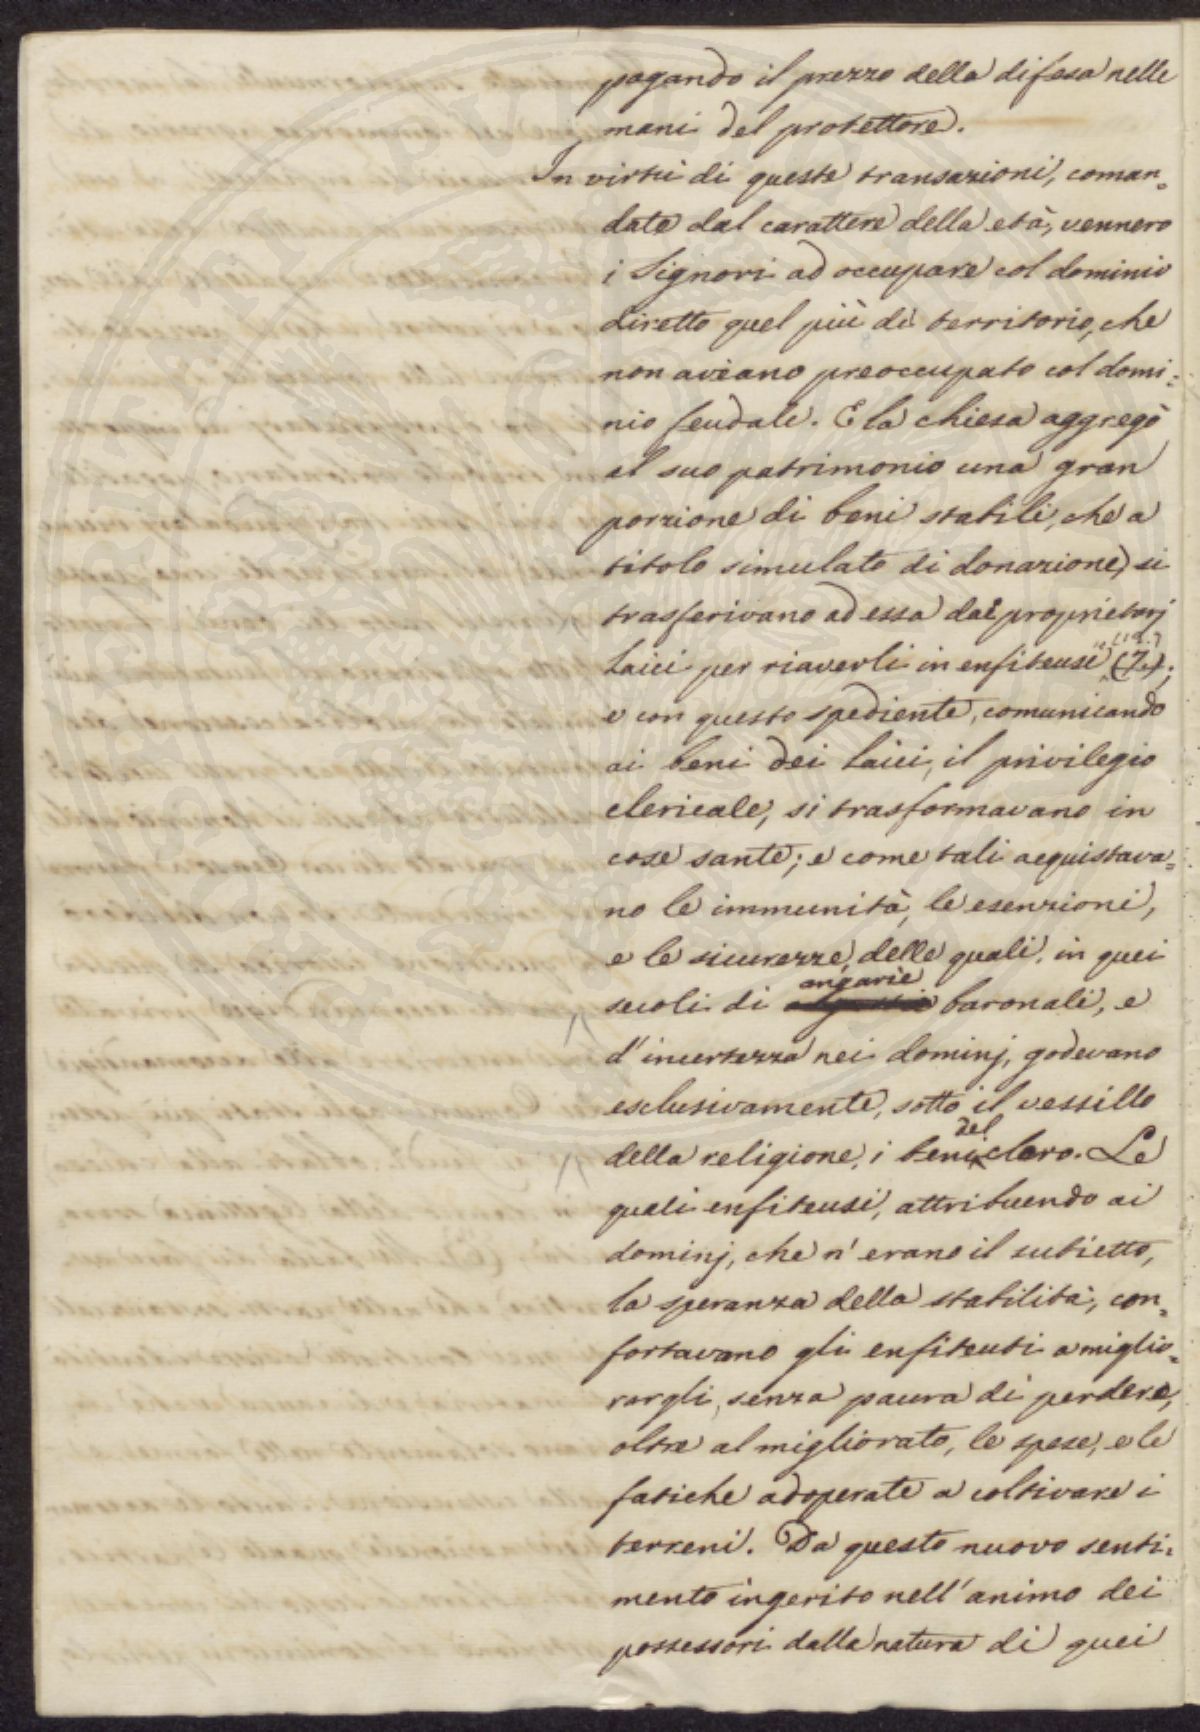 pagando il prezzo della difesa nelle
mani del protettore.
In virtù di queste transazioni, coman=
date dal carattere della età, vennero
i Signori ad occupare col dominio
diretto quel più di territorio, che
non aveano preoccupato col domi=
nio feudale. E la chiesa aggregò
al suo patrimonio una gran
porzione di beni stabili, che a
titolo simulato di donazione, si
trasferivano ad essa dai proprietarj
Laici per riaverli in enfiteusi (7.);
e con questo spediente, comunicando
ai beni dei Laici, il privilegio
clericale, si trasformavano in
cose sante; e come tali acquistava=
no le immunità, le esenzioni,
e le sicurezze, delle quali, in quei
angarie
secoli di baronali, e
d'incertezza nei dominj, godevano
esclusivamente, sotto il vessillo
del
della religione, i beni clero. Le
quali enfiteusi, attribuendo ai
dominj, che n'erano il subietto,
la speranza della stabilità, con=
fortavano gli enfiteuti a miglio=
rargli, senza paura di perdere,
oltre al migliorato, le spese, e le
fatiche adoperate a coltivare i
terreni. Da questo nuovo senti=
mento ingerito nell'animo dei
possessori dalla natura di quei